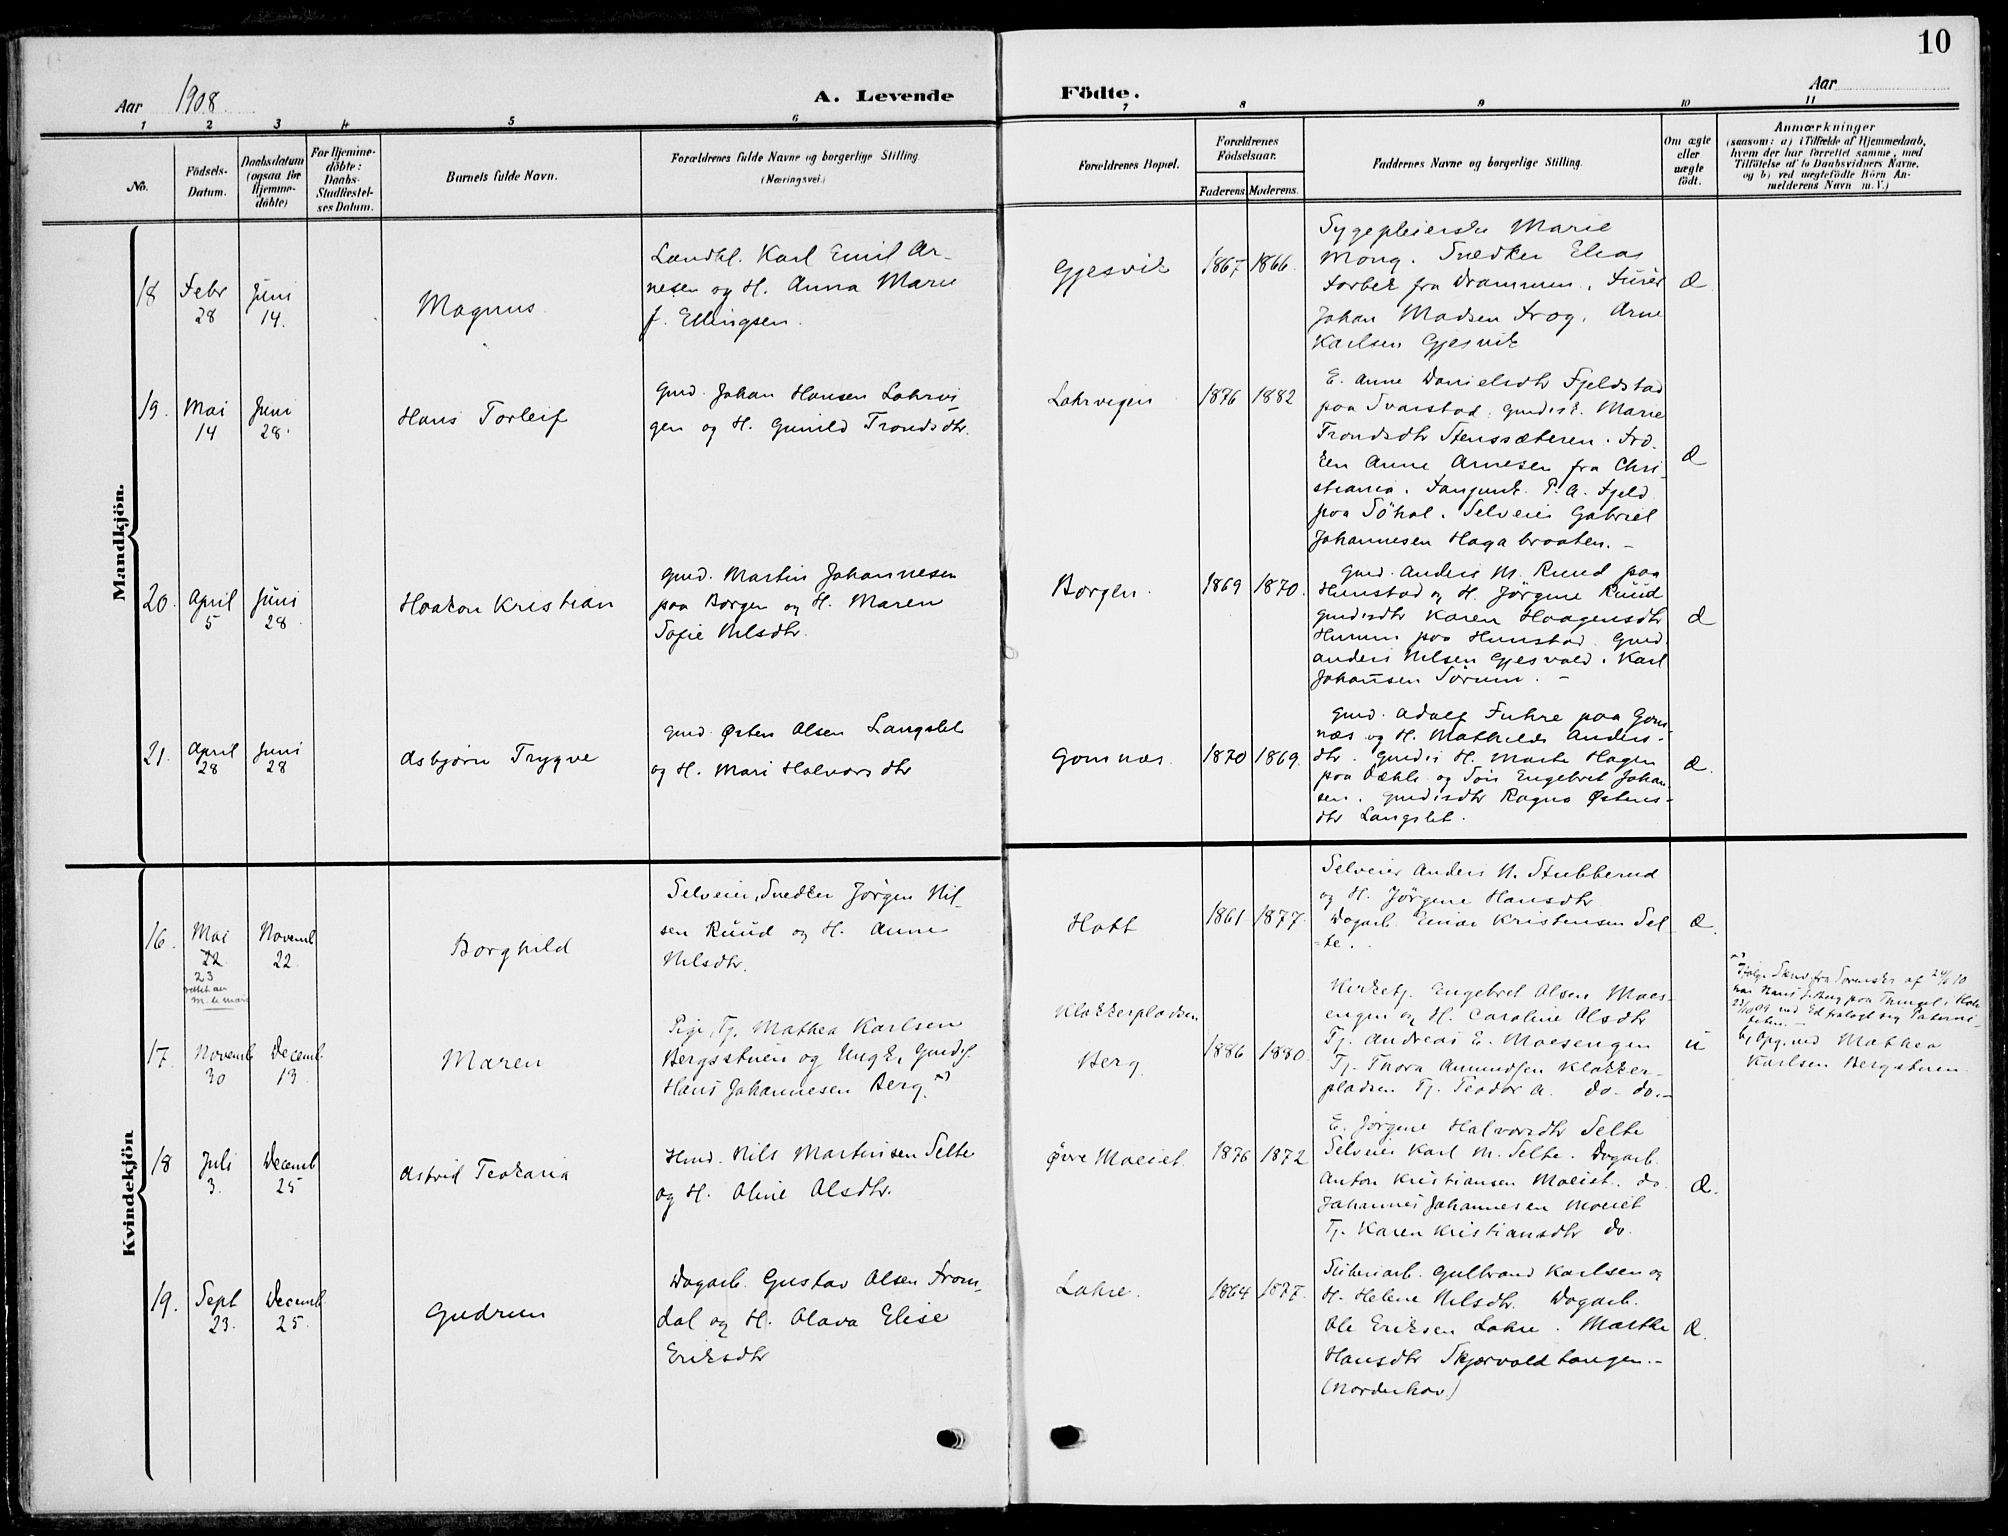 10
Aar 1908
A. Levende
Födte.
Aar
1 2 3 4 5 6 7 8 9 10 11
No.
Födsels-
Datum.
Daabsdatum
(ogsaa for
Hjemme-
döbte)
For Hjemme-
döbte:
Daabs-
Stadfæstel-
ses Datum.
Barnets fulde Navn.
Forældrenes fulde Navne og borgerlige Stilling
(Næringsvei.)
Forældrenes Bopæl.
Forældrenes
Födselsaar.
Faderens. Moderens.
Faddernes Navne og borgerlige Stilling.
Om ægte
eller
uægte
födt.
Anmærkninger
(saasom: a) i Tilfælde af Hjemmedaab,
hvem der har forrettet samme, med
Tilföielse af to Daabsvidners Navne.
og b) ved uægtefödte Börn An-
melderens Navn m. V.)
Mandkjön.
18
Febr
28
Juni
14.
Magnus
Landhl. Karl Emil Ar-
nesen og H. Anna Marie
f. Ellingsen.
Gjesvik
1867 1866.
Sygepleierske Marie
Mong. Snedker Elias
Torbek fra Drammen. Furer
Johan Madsen Frog. Arne
Karlsen Gjesvik
æ
19.
Mai
14
Juni
28.
Hans Torleif
Gmd. Johan Hansen Lahrvi
gen og H. Gunild Trondsdtr.
Lahrvigen
1876 1882
E. Anne Danielsdtr Fjeldstad
paa Svarstad. Gmdsk. Marie
Trondsdtr Stenssæteren. Frö-
ken Anne Arnesen fra Chri
stiania. P. A. Fjeld
paa Söhol. Selveier Gabriel
Johannesen Hagabraaten. -
æ
20.
April
5
Juni
28
Haakon Kristian
Gmd. Martin Johannesen
paa Borgen og H. Maren
Sofie Nilsdtr.
Borgen.
1869 1870.
Gmd. Anders M. Ruud paa
Hunstad og H. Jörgine Ruud
Gmdsdtr Karen Haagensdtr
paa Hunstad. Gmd.
Anders Nilsen Gjesvold. Karl
Johansen Sörum. -
æ
21.
April
28
Juni
28
Asbjørn Trygve
Gmd. Østen Olsen Langslet
og H. Mari Halvorsdtr
Gomnæs.
1870 1869.
Gmd. Adolf Fuhre paa Gom
næs og H. Mathilde Anders-
dtr. Gmds H. Marte Hagen
paa og Søn Engebret Johan
sen. Gmdsdtr Ragna Østens-
dtr Langslet.
æ.
Kvindekjön
16.
Mai
22.
23
Novemb
22.
Borghild
Selveier, Snedker Jörgen Nil-
sen Ruud og H. Anne
Nilsdtr.
Hatt
1861 1877.
Selveier Anders N. Stubberud
og H. Jörgine Hansdtr.
Dagarb. Einar Kristensen Sel
te.
æ.
17.
Novemb
30
Decemb.
13
Maren
Pige, Tj. Mathea Karlsen
Bergsstuen og Ungk. Gmds.
Hans Johannesen Berg. x)
Klækkerpladsen
Berg
1886 1880.
Kirketj. Engebret Olsen Moes-
engen og H. Caroline Olsdtr
Tj. Andreas E. Moesengen
Tj. Thora Amundsen Klækker-
pladsen Tj. Teodor A. do. do. -
u
b, Opg. ved Mathea
Karlsen Bergstuen.
18
Juli
3.
Decemb
25
Astrid Teokaria
Hmd. Nils Martinsen Selte
og H. Oline Olsdtr.
Øvre Moeiet.
1876 1872
E. Jörgine Halvorsdtr Selte
Selveier Karl M. Selte. Dagarb.
Anton Kristiansen Moeiet. do
Johannes Johannesen Moeiet
Tj. Karen Kristiansdtr do.
æ.
19.
Sept
23.
Decemb
25.
Gudrun
Dagarb. Gustav Olsen From-
dal og H. Olava Elise
Eriksdtr
Lahre.
1864 1877.
Sliberiarb. Gulbrand Karlsen og
H. Helene Nilsdtr. Dagarb.
Ole Eriksen Lahre. Marthe
Hansdtr Skjærvoldtangen. -
(Norderhov)
æ.